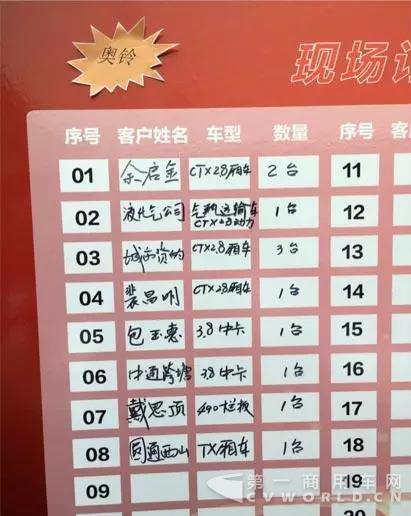 奥铃
现场订
序号 客户姓名 车型 数量 序号
01 余启金 CTX28厢车 2台 11
02 液化气公司 气瓶运输车 CTX28动力 1台 12
03 CTX28厢车 3台 13
04 裴昌明 CTX28厢车 1台 14
05 包玉惠 3.8中卡 1台 15
06 中通跨塘 3.8中卡 1台 16
07 戴思顶 490栏板 1台 17
08 圆通西山 TX厢车 1台 18
09 19
20
第一商用车网
CVWORLD.CN